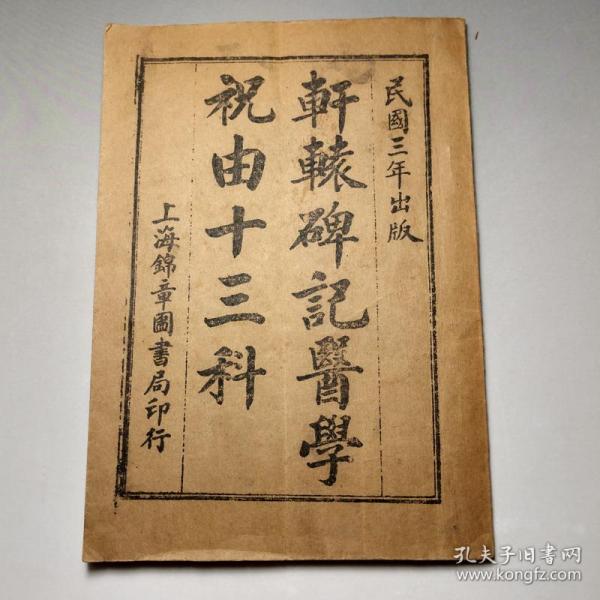 民國三年出版
軒轅碑記醫學
祝由十三科
上海錦章圖書局印行
孔夫子旧书网
www.kongfz.com